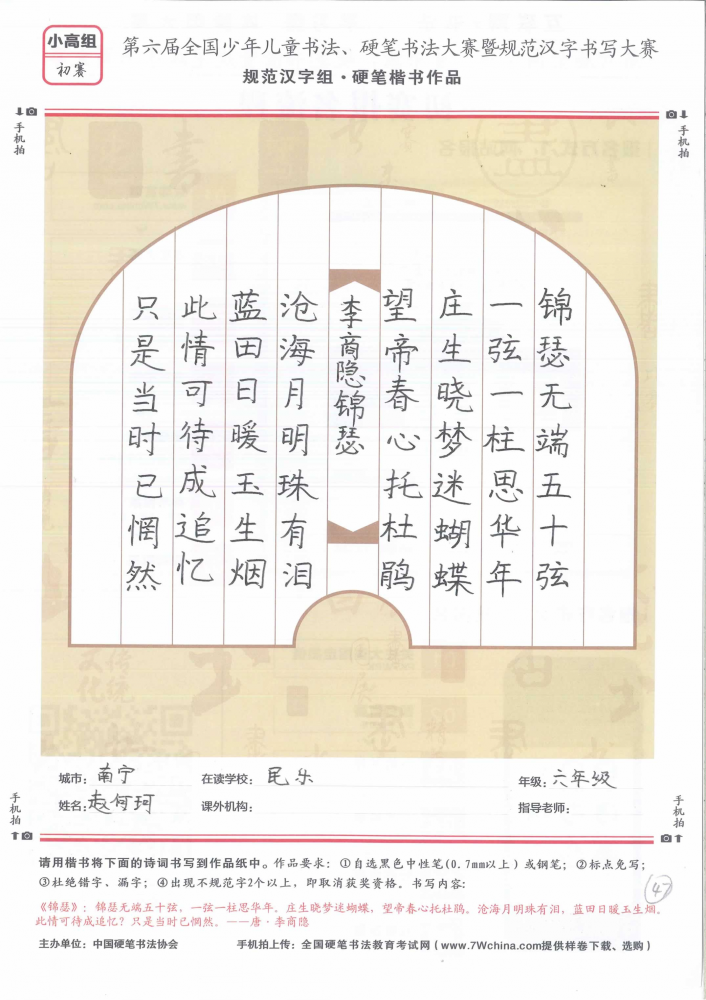 小高组
初赛
第六届全国少年儿童书法、硬笔书法大赛暨规范汉字书写大赛
规范汉字组·硬笔楷书作品
手机拍
手机拍
锦瑟无端五十弦
一弦一柱思华年
庄生晓梦迷蝴蝶
望帝春心托杜鹃
李商隐锦瑟
沧海月明珠有泪
蓝田日暖玉生烟
此情可待成追忆
只是当时已惘然
城市：南宁 在读学校：民乐 年级：六年级
姓名：赵何珂 课外机构： 指导老师：
手机拍
手机拍
请用楷书将下面的诗词书写到作品纸中。作品要求：①自选黑色中性笔(0.7mm以上）或钢笔；②标点免写；
③杜绝错字、漏字；④出现不规范字2个以上，即取消获奖资格。书写内容：
47
《锦瑟》：锦瑟无端五十弦，一弦一柱思华年。庄生晓梦迷蝴蝶，望帝春心托杜鹃。沧海月明珠有泪，蓝田日暖玉生烟。
此情可待成追忆？只是当时已惘然。——唐·李商隐
主办单位：中国硬笔书法协会 手机拍上传：全国硬笔书法教育考试网（www.7Wchina.com提供样卷下载、选购）